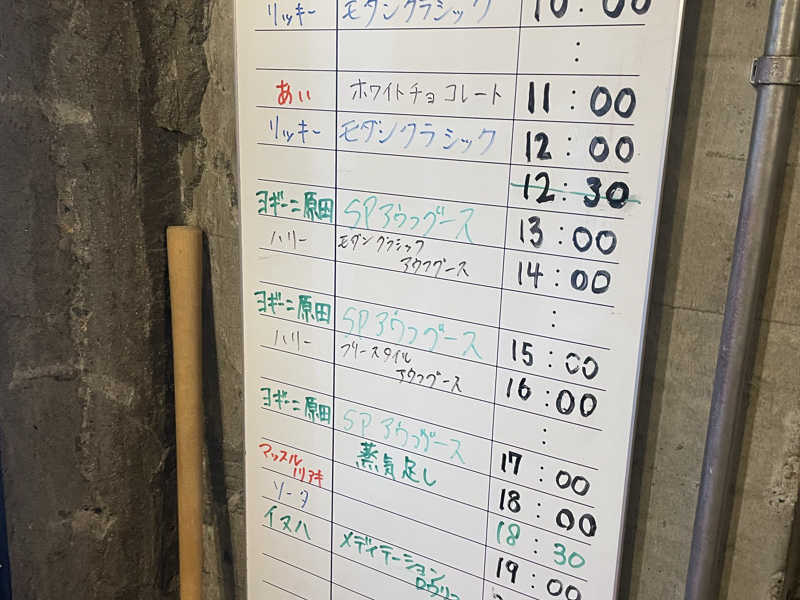 リッキー モダンクラシック 10:00
:
あい ホワイトチョコレート 11:00
リッキー モダンクラシック 12:00
12:30
ヨギーニ原田 SPアウフグース 13:00
ハリー モダンクラシック
アウフグース 14:00
:
ヨギーニ原田 SPアウフグース 15:00
ハリー フリースタイル
アウフグース 16:00
:
ヨギーニ原田 SPアウフグース 17:00
マッスル
ノリアキ 蒸気足し 18:00
ソータ 18:30
イヌハ メディテーション 19:00